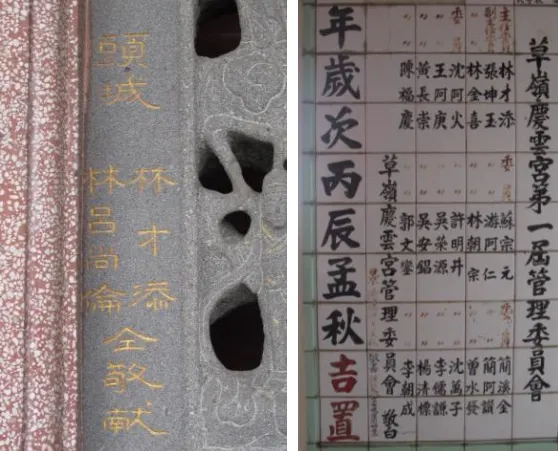 頭城
林才添
林呂尚倫
仝敬献
草嶺慶雲宮第一屆管理委員會
主任委員 林才添 委員 蘇宗元 委員 簡溪金
副主任委員 張坤王 〃 游阿仁 〃 簡阿韻
〃 林金喜 〃 林朝宗 〃 曾水發
委員 沈阿火 〃 許明井 〃 沈萬子
〃 王阿庚 〃 吳榮源 〃 李儒謙
〃 黃長崇 〃 吳安錩 〃 楊清標
〃 陳福慶 〃 郭文鑾 〃 李朝成
草嶺慶雲宮管理委員會 敬白
年歲次丙辰孟秋吉置